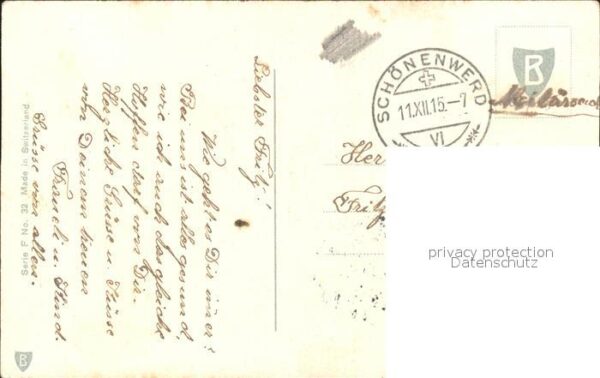 Liebster Fritz!
Wie geht es Dir immer?
Bei uns ist alles gesund,
wie ich auch das gleiche
Hoffen darf von Dir.
Herzliche Grüsse u. Küsse
von Deinem treuen
Fraueli u. Kind.
Grüsse von allen.
Serie F No. 32 Made in Switzerland
B
SCHÖNENWERD
11.XII.15.-7
VI
B
Her
Fritz
privacy protection
Datenschutz